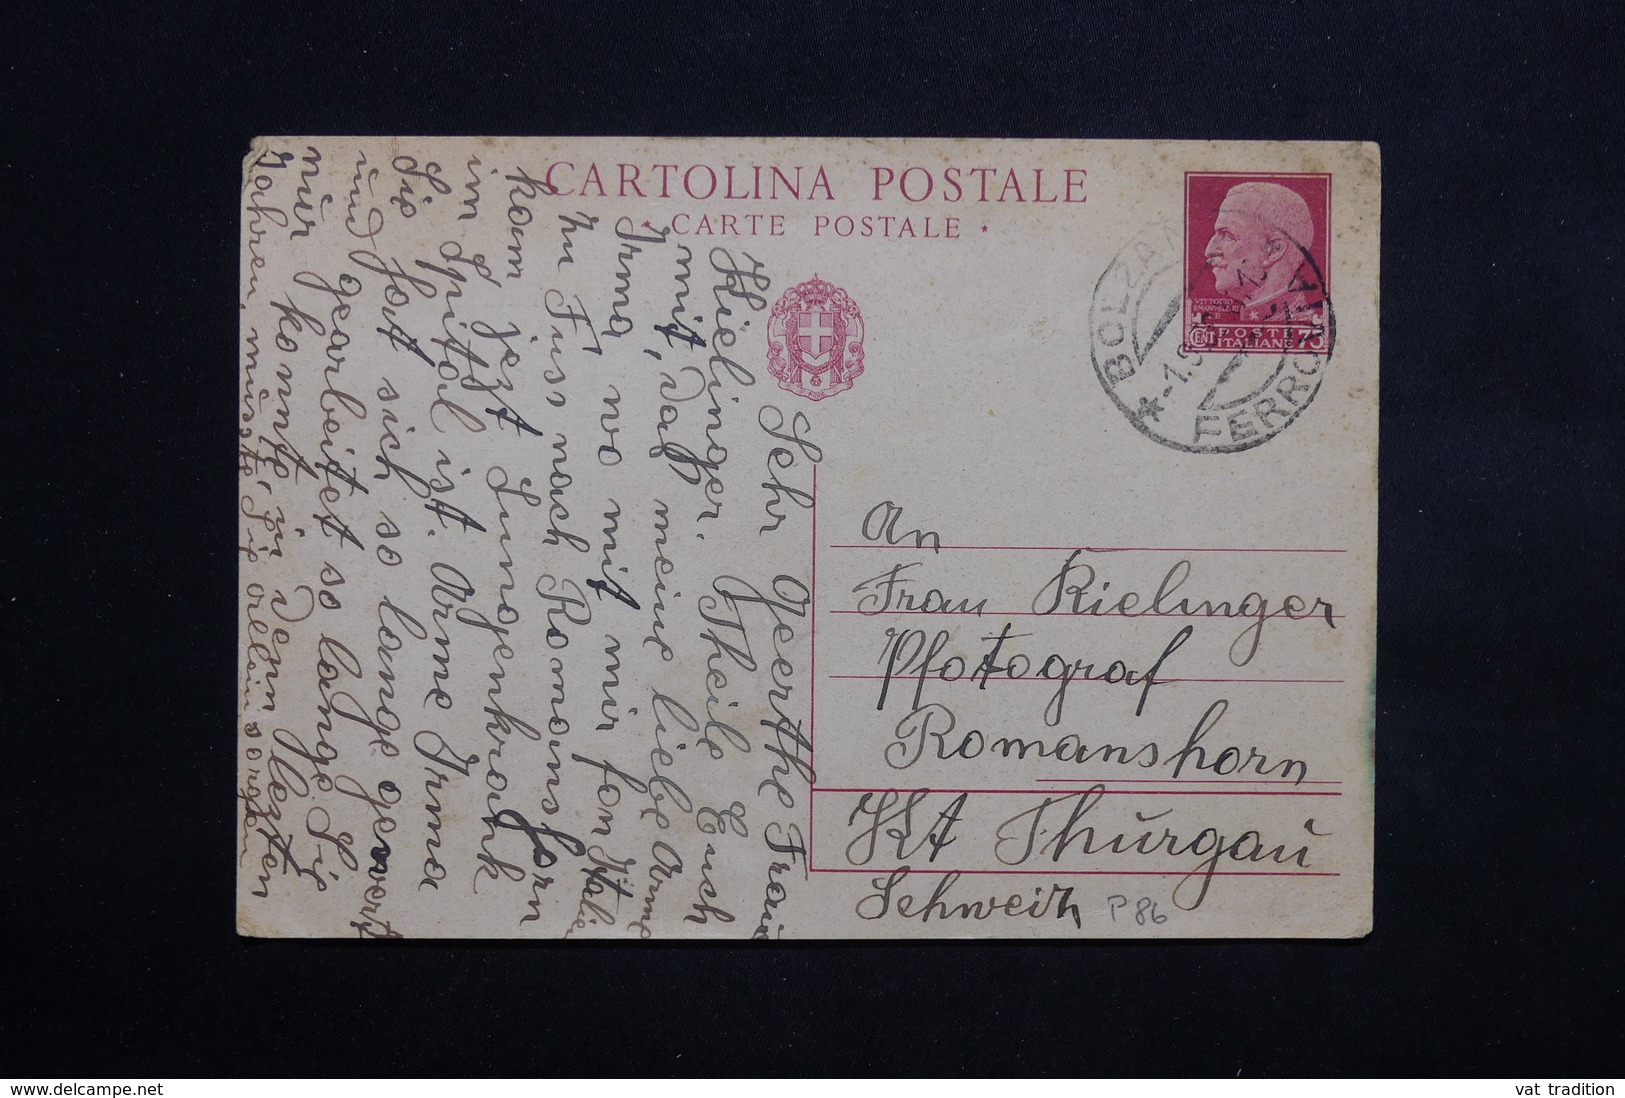 CARTOLINA POSTALE
* CARTE POSTALE *
VITTORIO
EMANUELE III
RE
POSTE
ITALIANE
CENT 75
BOLZANO
FERROVIA
An
Frau Kielinger
Pfotograf
Romanshorn
Kt Thurgau
Schweiz
P 86
Sehr Geerthe Frau
Kielinger. Theile Euch
mit, daß meine liebe Arme
Irma, wo mit mir fon Italien
zu Fuss nach Romanshorn
kam jezt Lungenkrank
im Spital ist. Arme Irma
Sie hat sich so lange gewert
und gearbeitet so lange Sie
nur konnte, in denn lezten
Jahren, musste Sie allein sorgen
www.delcampe.net
vat_tradition